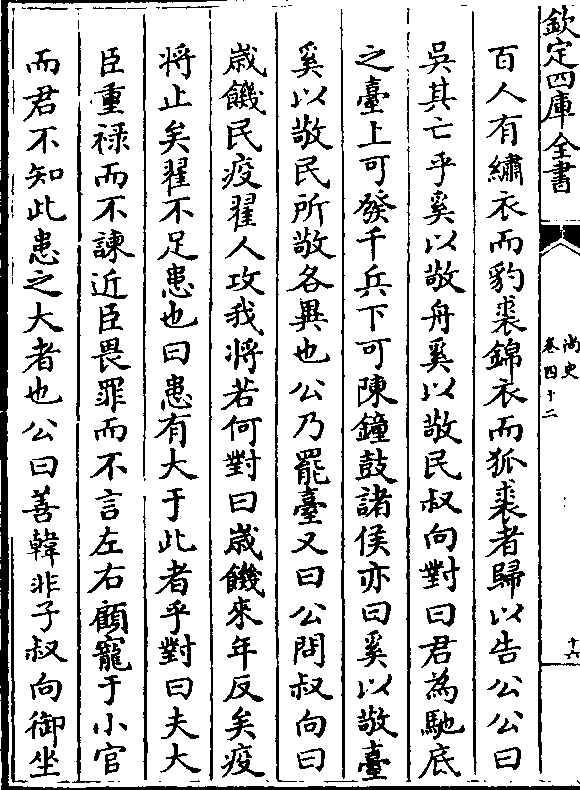 欽定四庫全書
尚史
卷四十二
十六
百人有繡衣而豹裘錦衣而狐裘者歸以告公公曰
吳其亡乎奚以敬舟奚以敬民叔向對曰君為馳底
之臺上可發千兵下可陳鐘鼓諸侯亦曰奚以敬臺
奚以敬民所敬各異也公乃罷臺又曰公問叔向曰
歲饑民疫翟人攻我將若何對曰歲饑來年反矣疫
將止矣翟不足患也曰患有大于此者乎對曰夫大
臣重祿而不諫近臣畏罪而不言左右顧寵于小官
而君不知此患之大者也公曰善韓非子叔向御坐